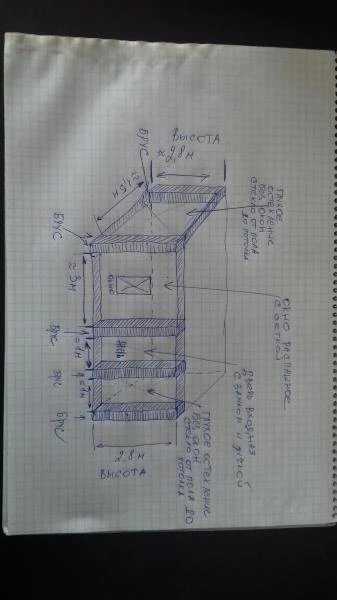 ВЫСОТА
≈ 2,8 м
БРУС
≈ 1,5 м
ГЛУХОЕ
ОСТЕКЛЕНИЕ
БЕЗ ОКОН
СТЕКЛО ОТ ПОЛА
ДО ПОТОЛКА
БРУС
≈ 3 м
ОКНО
ОКНО РАСПАШНОЕ
С СЕТКОЙ
БРУС
≈ 1 м
ДВЕРЬ
ДВЕРЬ ВХОДНАЯ
С ЗАМКОМ И РУЧКОЙ
БРУС
≈ 1 м
БРУС
ГЛУХОЕ ОСТЕКЛЕНИЕ
БЕЗ ОКОН
СТЕКЛО ОТ ПОЛА ДО
ПОТОЛКА
2,8 м
ВЫСОТА